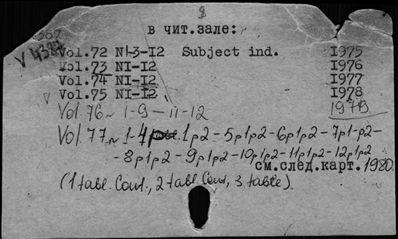 в чит.зале:
V 4384
Vol.72 NI-3-I2 Subject ind. I975
Vol.73 NI-I2 I976
Vol.74 NI-I2 I977
Vol.75 NI-I2 I978
Vol.76~ 1-9-11-12 1979
Vol.77~ 1-4 1p2-5p1p2-6p1p2-7p1-p2-
-8p1p2-9p1p2-10p1p2-11p1p2-12p1p2
см.след.карт. 1980
(1 tabl. Cont., 2 tabl. Cont, 3 table).